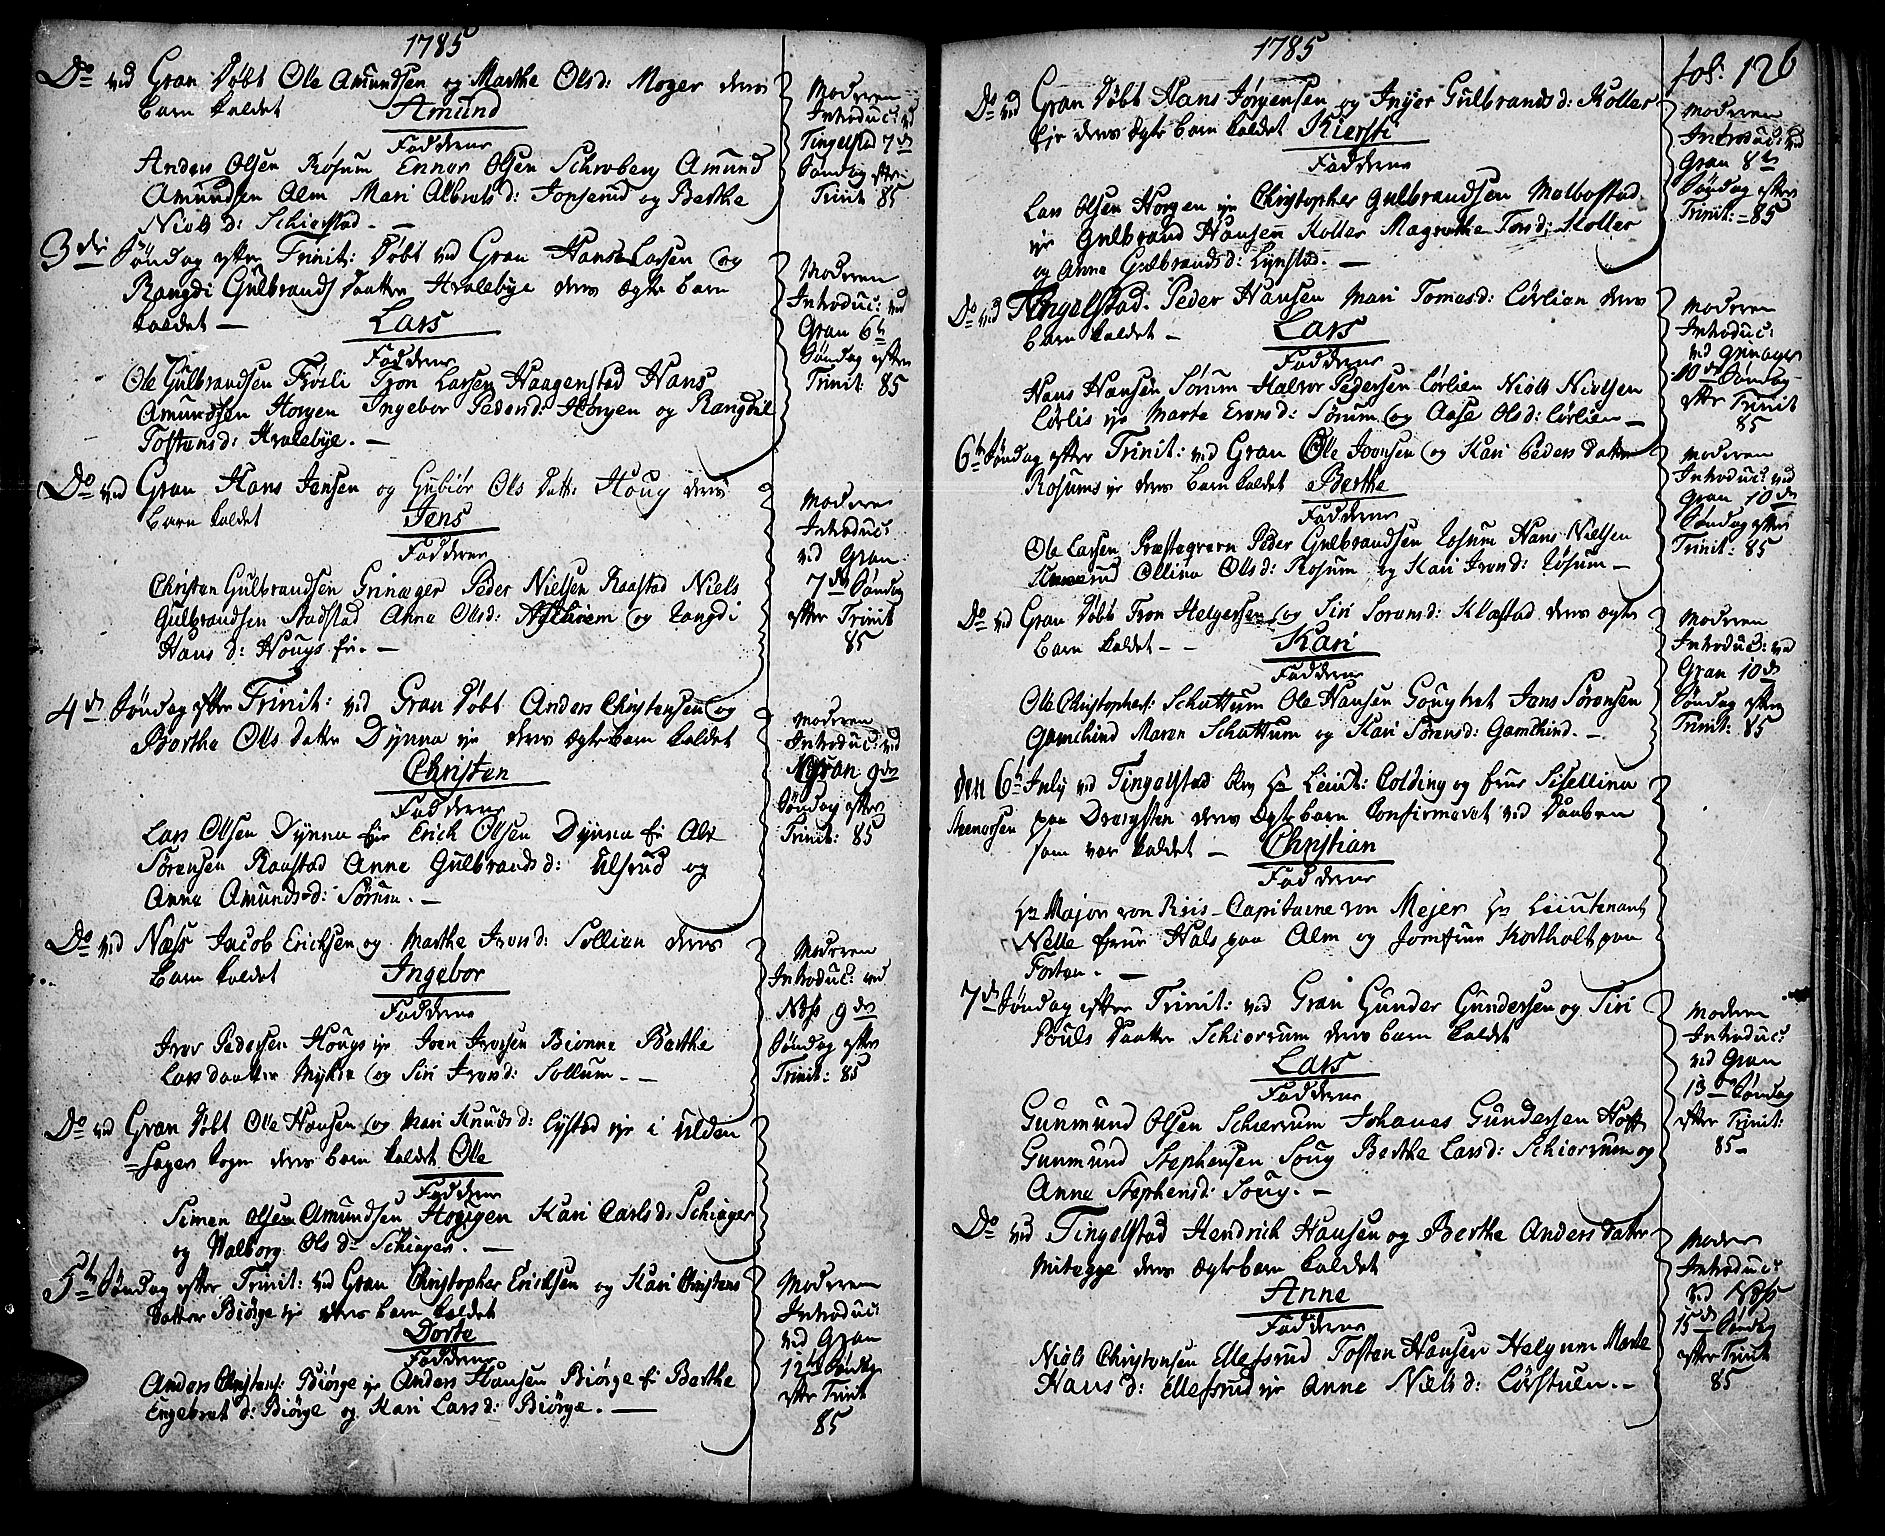 1785
Do ved Gran Døbt Ole Amundsen og Marthe Olsd: Moger deres
Barn kaldet Amund
Fadderne
Anders Olsen Røsum Ennor Olsen Schreberg Amund
Amundsen Alm Mari Albretsd: Jonserud og Berthe
Nielsd: Schierstad. —
Moderen
Introduc: ved
Tingelstad 7de
Søndag efter
Trinit 85
3die Søndag efter Trinit: Døbt ved Gran Hans Larsen og
Rangdi Gulbrands Daatter Hvalebye deres ægte barn
kaldet — Lars
Fadderne
Ole Gulbrandsen Frøsli Tron Larsen Haagenstad Hans
Amundsen Horgen Ingebor Pedersd: Horgen og Rangdil
Tostensd: Hvalebye. —
Moderen
Introduc: ved
Gran 6te
Søndag efter
Trinit: 85
Do ved Gran Hans Jensen og Gubiør Ols Datt: Houg deres
Barn kaldet Jens
Fadderne
Christen Gulbrandsen Grinager Peder Nielsen Raastad Niels
Gulbrandsen Stadstad Anne Olsd: og Rangdi
Hansd: Hougs Ei. —
Moderen
Introduc:
ved Gran
7de Søndag
efter Trinit
85
4de Søndag efter Trinit: ved Gran Døbt Anders Christensen og
Berthe Ols datter Dynna eje deres ægte barn kaldet
Christen
Fadderne
Lars Olsen Dynna Eie Erich Olsen Dynna Ei Ole
Sørensen Raastad Anne Gulbrandsd: Ulsrud og
Anne Amundsd: Sørum. —
Moderen
Introduc: ved
Gran 9de
Søndag efter
Trinit: 85
Do ved Næss Jacob Ericksen og Marthe Iversd: Sollien deres
Barn kaldet Ingebor
Fadderne
Iver Pedersen Hougs eje Joen Iversen Bionne Berthe
Lars daatter Myhre og Siri Iversd: Sollum. —
Moderen
Introduc: ved
Næss 9de
Søndag efter
Trinit: 85
Do ved Gran Døbt Ole Hansen og Mari Knudsd: Lystad eje i Ulden
=sager Sogn deres barn kaldet Ole
Fadderne
Simen Olsen Amundsen Horgen Kari Carlsd: Schiager
og Walborg Olsd: Schiager. —
5te Søndag efter Trinit: ved Gran Christopher Ericksen og Kari Christens
Datter Biørge eje deres barn kaldet
Dorte
Fadderne
Anders Christens: Biørge eje Anders Hansen Biørge Ei Berthe
Engebretd: Biørge og Kari Larsd: Biørge. —
Moderen
Introduc:
ved Gran
12te Søndag
efter Trinit
85
1785
fol: 126
Do ved Gran Døbt Hans Jørgensen og Inger Gulbrandsd: Koller
Eje deres ægte barn kaldet Kiersti
Fadderne
Lars Olsen Horgen eje Christopher Gulbrandsen Molbostad
eje Gulbrand Hansen Koller Magrethe Torsd: Koller
og Anne Gulbrandsd: Lynstad. —
Moderen
Introduc: ved
Gran 8te
Søndag efter
Trinit: = 85
Do ved Tingelstad. Peder Hansen Mari Tomasd: Lørlien deres
Barn kaldet — Lars
Fadderne
Hans Hansen Sørum Halvor Pedersen Lørlien Niels Nielsen
Lørlie eje Marte Evensd: Sørum og Aase Olsd: Lørlien —
Moderen
Introduc:
ved Grinager
10de Søndag
efter Trinit
85
6te Søndag efter Trinit: ved Gran Ole Joensen og Kari Peders Datter
Rosums eje deres Barn kaldet Berthe
Fadderne
Ole Larsen Præstegrern Peder Gulbrandsen Rosum Hans Nielsen
Ollina Olsd: Rosum og Kari Iversd: Rosum —
Moderen
Introduc: ved
Gran 10de
Søndag efter
Trinit: 85
Do ved Gran Døbt Tron Helgersen og Siri Sorensd: Klæstad deres ægte
Barn kaldet — — Kari
Fadderne
Ole Christophers: Schattum Ole Hansen Gougtvet Jens Sørensen
Gamchind Maren Schattum og Kari Sørensd: Gamchind. —
Moderen
Introduc: ved
Gran 10de
Søndag efter
Trinit: 85
den 6te July ved Tingelstad blev Hr Leiut: Colding og frue Sisellina
Steenersen paa Dvergsten deres ægte barn Confirmeret ved Daaben
som var kaldet — Christian
Fadderne
Hr Major von Riis — Capitaine von Mejer Hr Leiutenant
Nelle frue Hals paa Alm og Jomfrue Kortholt paa
Forten. —
7de Søndag efter Trinit: ved Gran Gunder Gundersen og Siri
Pouls Daatter Schierrum deres barn kaldet
Lars
Fadderne
Gunmund Olsen Schierrum Johanes Gundersen Hoff
Gunmund Stephensen Soug Berthe Larsd: Schierrum og
Anne Stephensd: Soug. —
Moderen
Introduc:
ved Gran
13de Søndag
efter Trinit:
85 —
Do ved Tingelstad Hendrich Hansen og Berthe Anders datter
Mitegge deres ægte barn kaldet
Anne
Fadderne
Niels Christensen Ellefsrud Tosten Hansen Helgum Marte
Hans d: Ellefsrud eje Anne Nielsd: Lørstuen. —
Moder
Introduc:
ved Næss
15de Søndag
efter Trinit
85